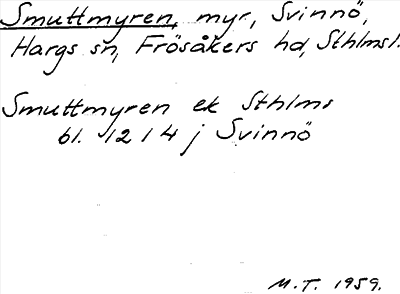 Smuttmyren, myr, Svinnö,
Hargs sn, Frösåkers hd, Sthlmsl.
Smuttmyren ek Sthlms
bl. 1214 j Svinnö
M.T. 1959.